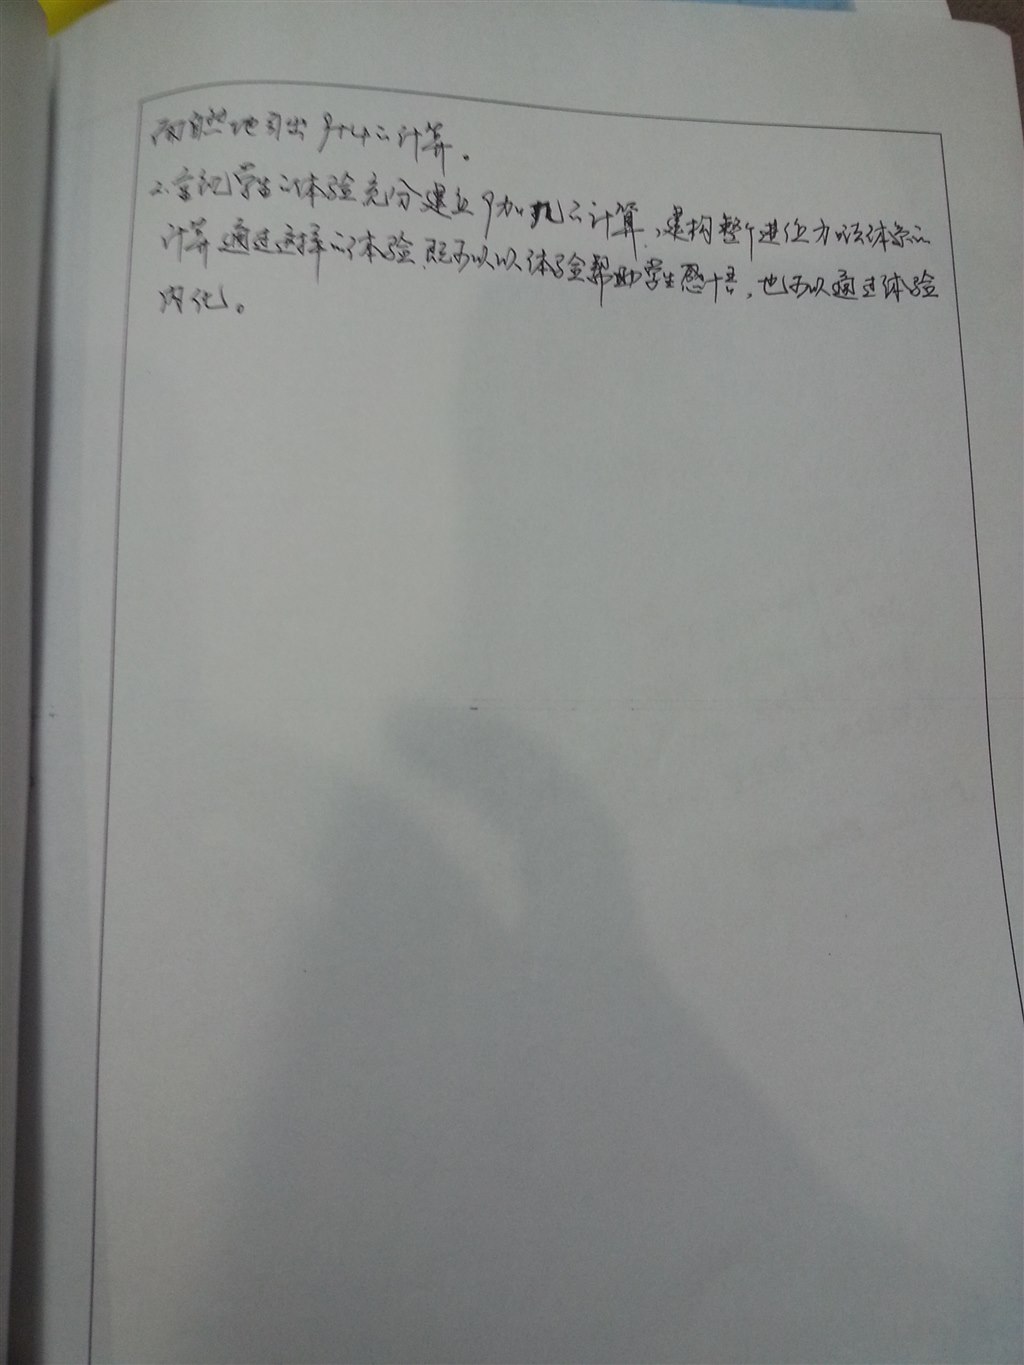 而自然地引出9+4的计算。
2.重视学生的体验充分建立9加几的计算,建构整个进位加法体系的
计算通过这样的体验,既可以以体验帮助学生感悟,也可以通过体验
内化。